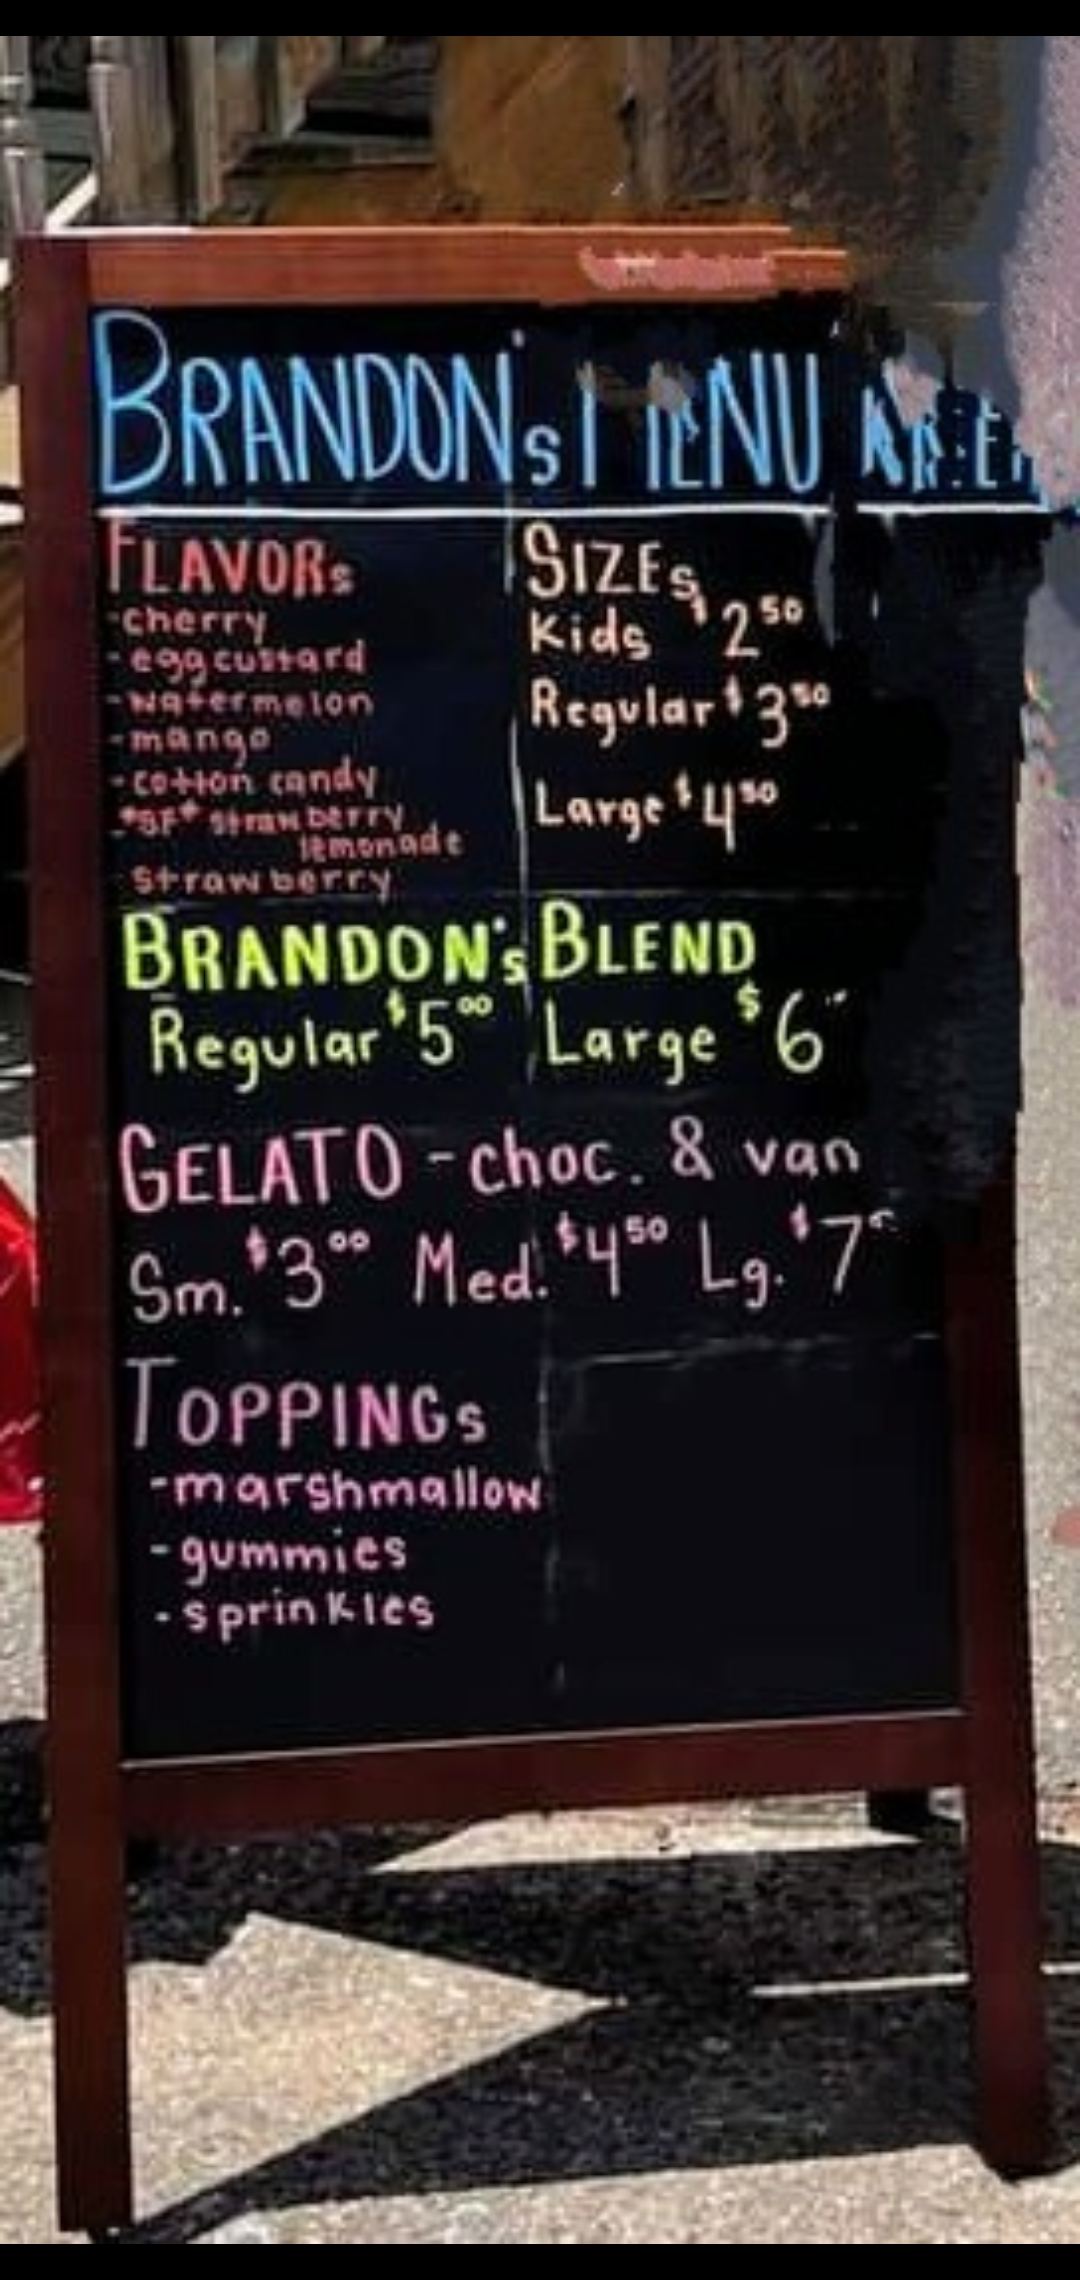 BRANDON's MENU
FLAVORs
-cherry
-egg custard
-watermelon
-mango
-cotton candy
-*SF* strawberry
lemonade
strawberry
SIZEs
Kids $2.50
Regular $3.50
Large $4.50
BRANDON's BLEND
Regular $5.00 Large $6
GELATO - choc. & van
Sm. $3.00 Med. $4.50 Lg. $7
TOPPINGs
-marshmallow
-gummies
-sprinkles